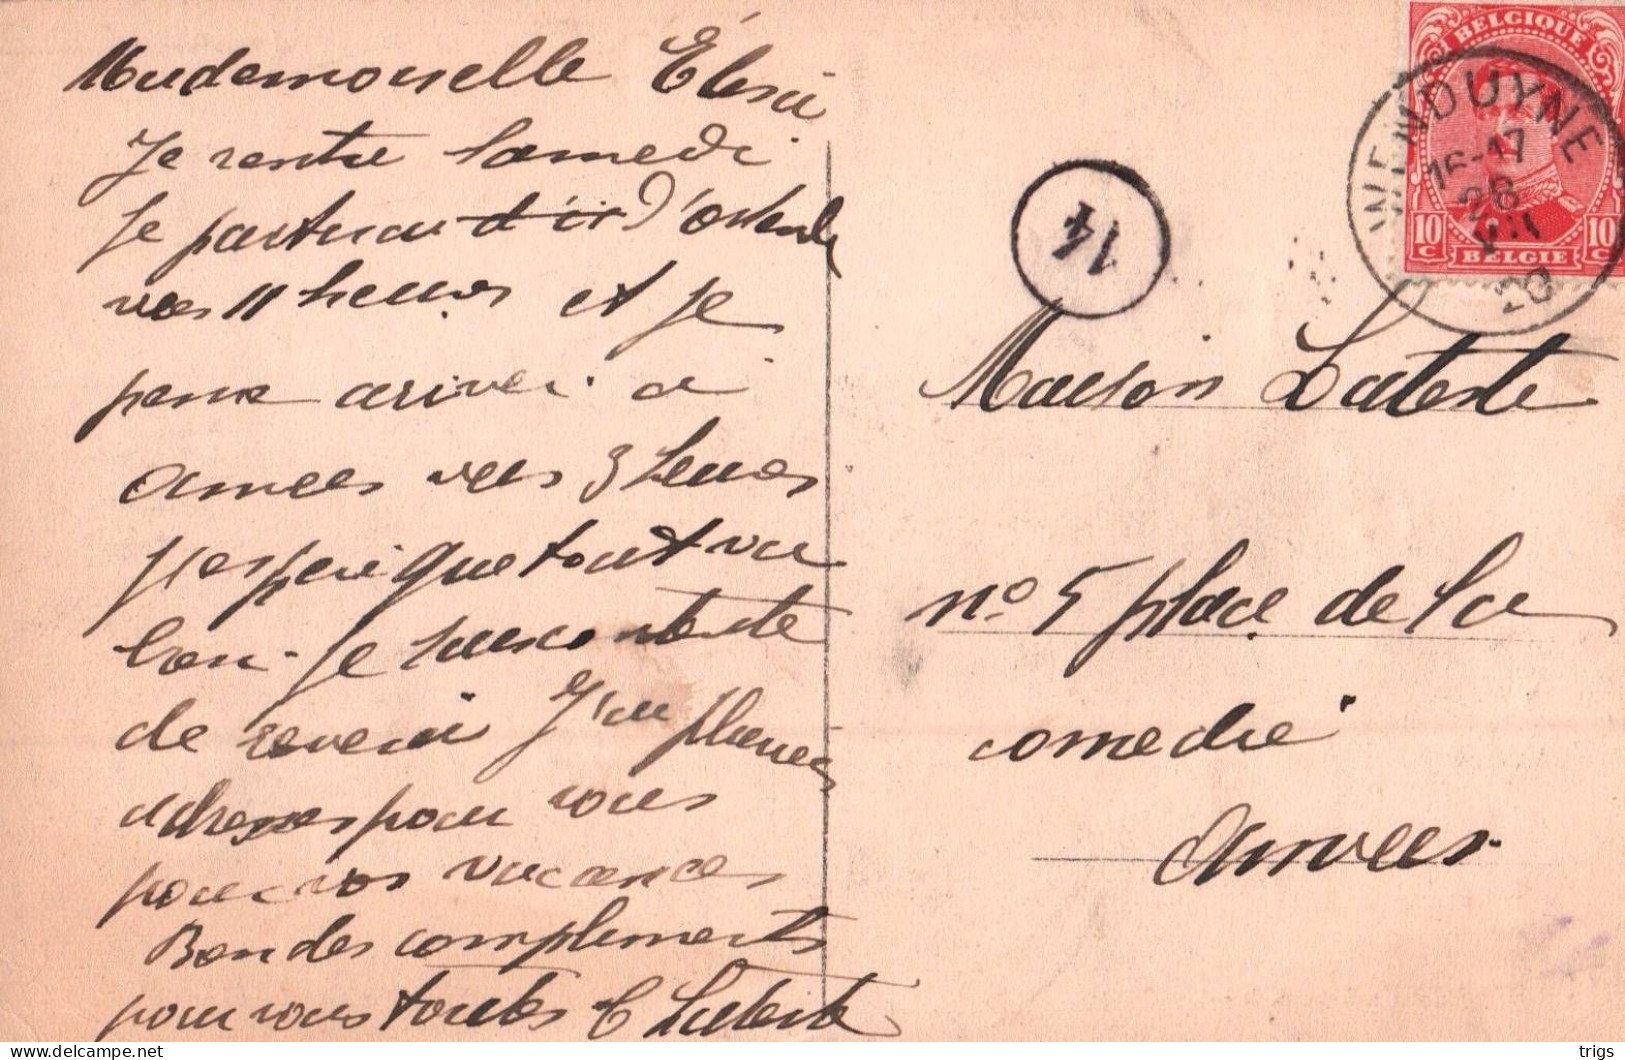 Mademoiselle Elsie
Je rentre Samedi
Je partirai d'ici d'Ostende
vers 11 heures et je
pense ariver a
Anvers vers 3 heures
j'espere que tout va
bien. Je suis contente
de revenir J'ai plusieurs
adresses pour vous
pour vos vacances
Bon des compliments
pour vous toutes E Lateste
BELGIQUE
10 c
10 c
BELGIE
WENDUYNE
16-17
26
VII
20
14
Maison Lateste
n° 5 place de la
comedie
Anvers
delcampe.net
trigs